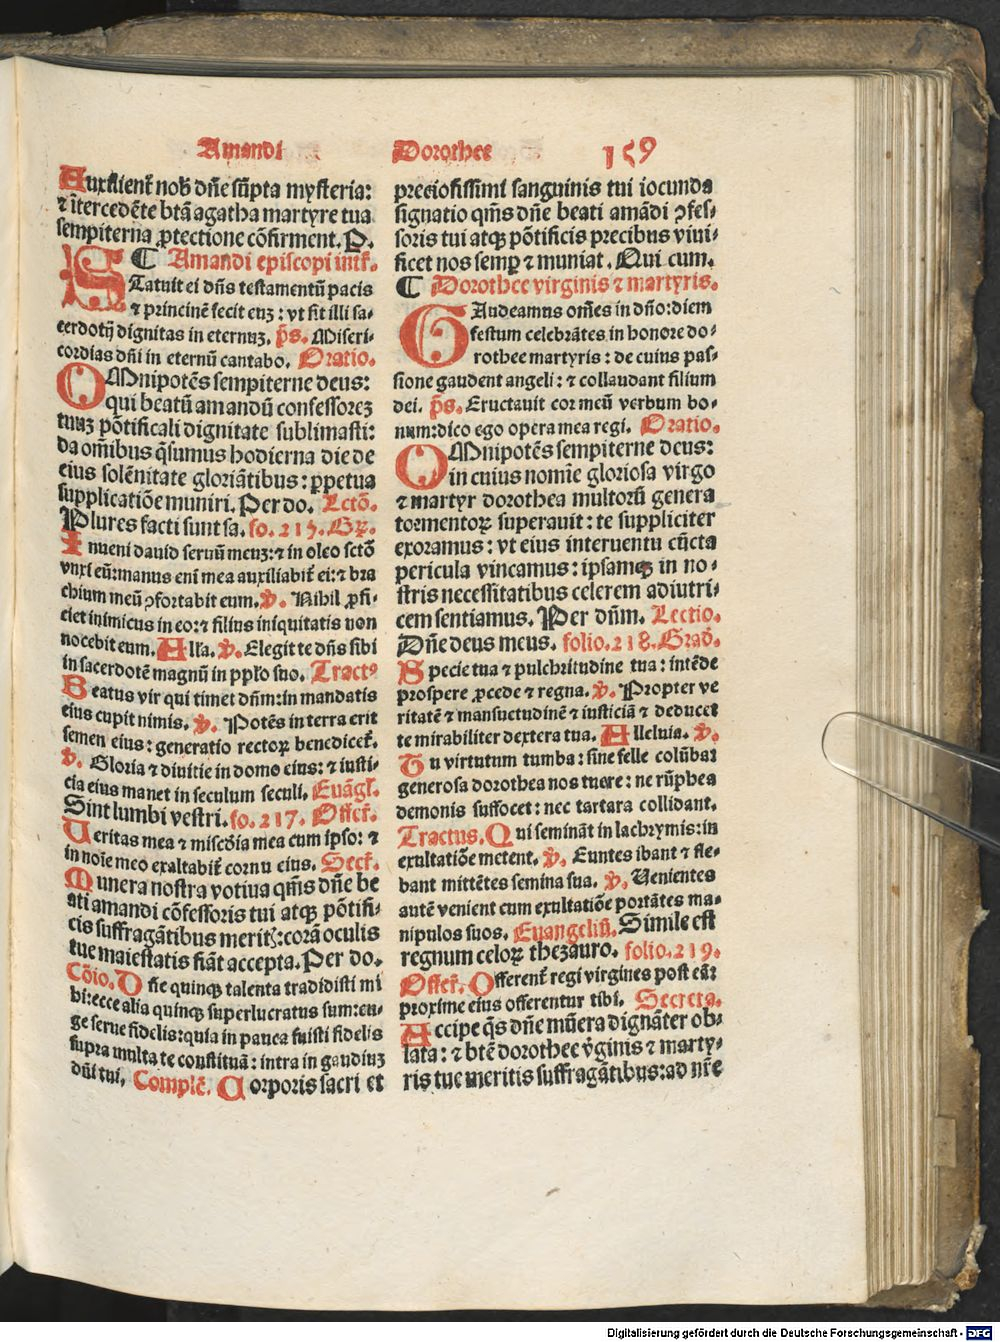 Amandi
Dorothee 159
Auxilient᷑ nob̃ dñe sũpta mysteria:
⁊ ĩtercedẽte btã agatha martyre tua
sempiterna ꝓtectione cõfirment. P.
¶ Amandi episcopi intr̃.
STatuit ei dñs testamentũ pacis
⁊ principẽ fecit euꝫ: vt sit illi sa⸗
cerdotij dignitas in eternuꝫ. p̃s. Miseri⸗
cordias dñi in eternũ cantabo. Oratio.
OMnipotẽs sempiterne deus:
qui beatũ amandũ confessoreꝫ
tuuꝫ põtificali dignitate sublimasti:
da om̃ibus q̃sumus hodierna die de
eius solẽnitate gloriãtibus: ꝑpetua
supplicatiõe muniri. Per do. Lctõ.
Plures facti sunt sa. fo. 215. Gr̃.
Inueni dauid seruũ meuꝫ: ⁊ in oleo sctõ
vnxi eũ: manus eni mea auxiliabit᷑ ei: ⁊ bra
chium meũ ↄfortabit eum. v̕. Nihil ꝓfi⸗
ciet inimicus in eo: ⁊ filius iniquitatis non
nocebit eum. All̃a. v̕. Elegit te dñs sibi
in sacerdotẽ magnũ in ppl̃o suo. Tractꝰ
Beatus vir qui timet dñm: in mandatis
eius cupit nimis. v̕. Potẽs in terra erit
semen eius: generatio rectoꝝ benedicet᷑.
v̕. Gloria ⁊ diuitie in domo eius: ⁊ iusti⸗
cia eius manet in seculum seculi. Euãgl̃.
Sint lumbi vestri. fo. 217. Offer̃.
Ueritas mea ⁊ misc̃dia mea cum ipso: ⁊
in noĩe meo exaltabit᷑ cornu eius. Secr̃.
Munera nostra votiua qm̃s dñe be
ati amandi cõfessoris tui atqꝫ põtifi⸗
cis suffragãtibus meritꝭ: corã oculis
tue maiestatis fiãt accepta. Per do.
Cõio. Dñe quinqꝫ talenta tradidisti mi
hi: ecce alia quinqꝫ superlucratus sum: eu⸗
ge serue fidelis: quia in pauca fuisti fidelis
supra multa te constituã: intra in gaudiuꝫ
dñi tui. Complẽ. Corporis sacri et
preciosissimi sanguinis tui iocunda
signatio qm̃s dñe beati amãdi ↄfes⸗
soris tui atqꝫ põtificis precibus viui⸗
ficet nos semꝑ ⁊ muniat. Qui cum.
¶ Dorothee virginis ⁊ martyris.
GAudeamus om̃es in dño: diem
festum celebrãtes in honore do⸗
rothee martyris: de cuius pas⸗
sione gaudent angeli: ⁊ collaudant filium
dei. p̃s. Eructauit cor meũ verbum bo⸗
num: dico ego opera mea regi. Oratio.
OMnipotẽs sempiterne deus:
in cuius nomĩe gloriosa virgo
⁊ martyr dorothea multorũ genera
tormentoꝝ superauit: te suppliciter
exoramus: vt eius interuentu cũcta
pericula vincamus: ipsamqꝫ in no⸗
stris necessitatibus celerem adiutri⸗
cem sentiamus. Per dñm. Lectio.
Dñe deus meus. folio. 218. Grad̃.
Specie tua ⁊ pulchritudine tua: intẽde
prospere ꝓcede ⁊ regna. v̕. Propter ve
ritatẽ ⁊ mansuetudinẽ ⁊ iusticiã ⁊ deducet
te mirabiliter dextera tua. Alleluia. v̕.
Tu virtutum tumba: sine felle colũba:
generosa dorothea nos tuere: ne rũphea
demonis suffocet: nec tartara collidant.
Tractus. Qui seminãt in lachrymis: in
exultatiõe metent. v̕. Euntes ibant ⁊ fle⸗
bant mittẽtes semina sua. v̕. Uenientes
autẽ venient cum exultatiõe portãtes ma⸗
nipulos suos. Euangeliũ. Simile est
regnum celoꝝ thezauro. folio. 219.
Offer̃. Offerent᷑ regi virgines post eã:
proxime eius offerentur tibi. Secreta.
Accipe q̃s dñe mũera dignãter ob⸗
lata: ⁊ btẽ dorothee v̕ginis ⁊ marty⸗
ris tue meritis suffragãtibus: ad nr̃e
Digitalisierung gefördert durch die Deutsche Forschungsgemeinschaft - DFG